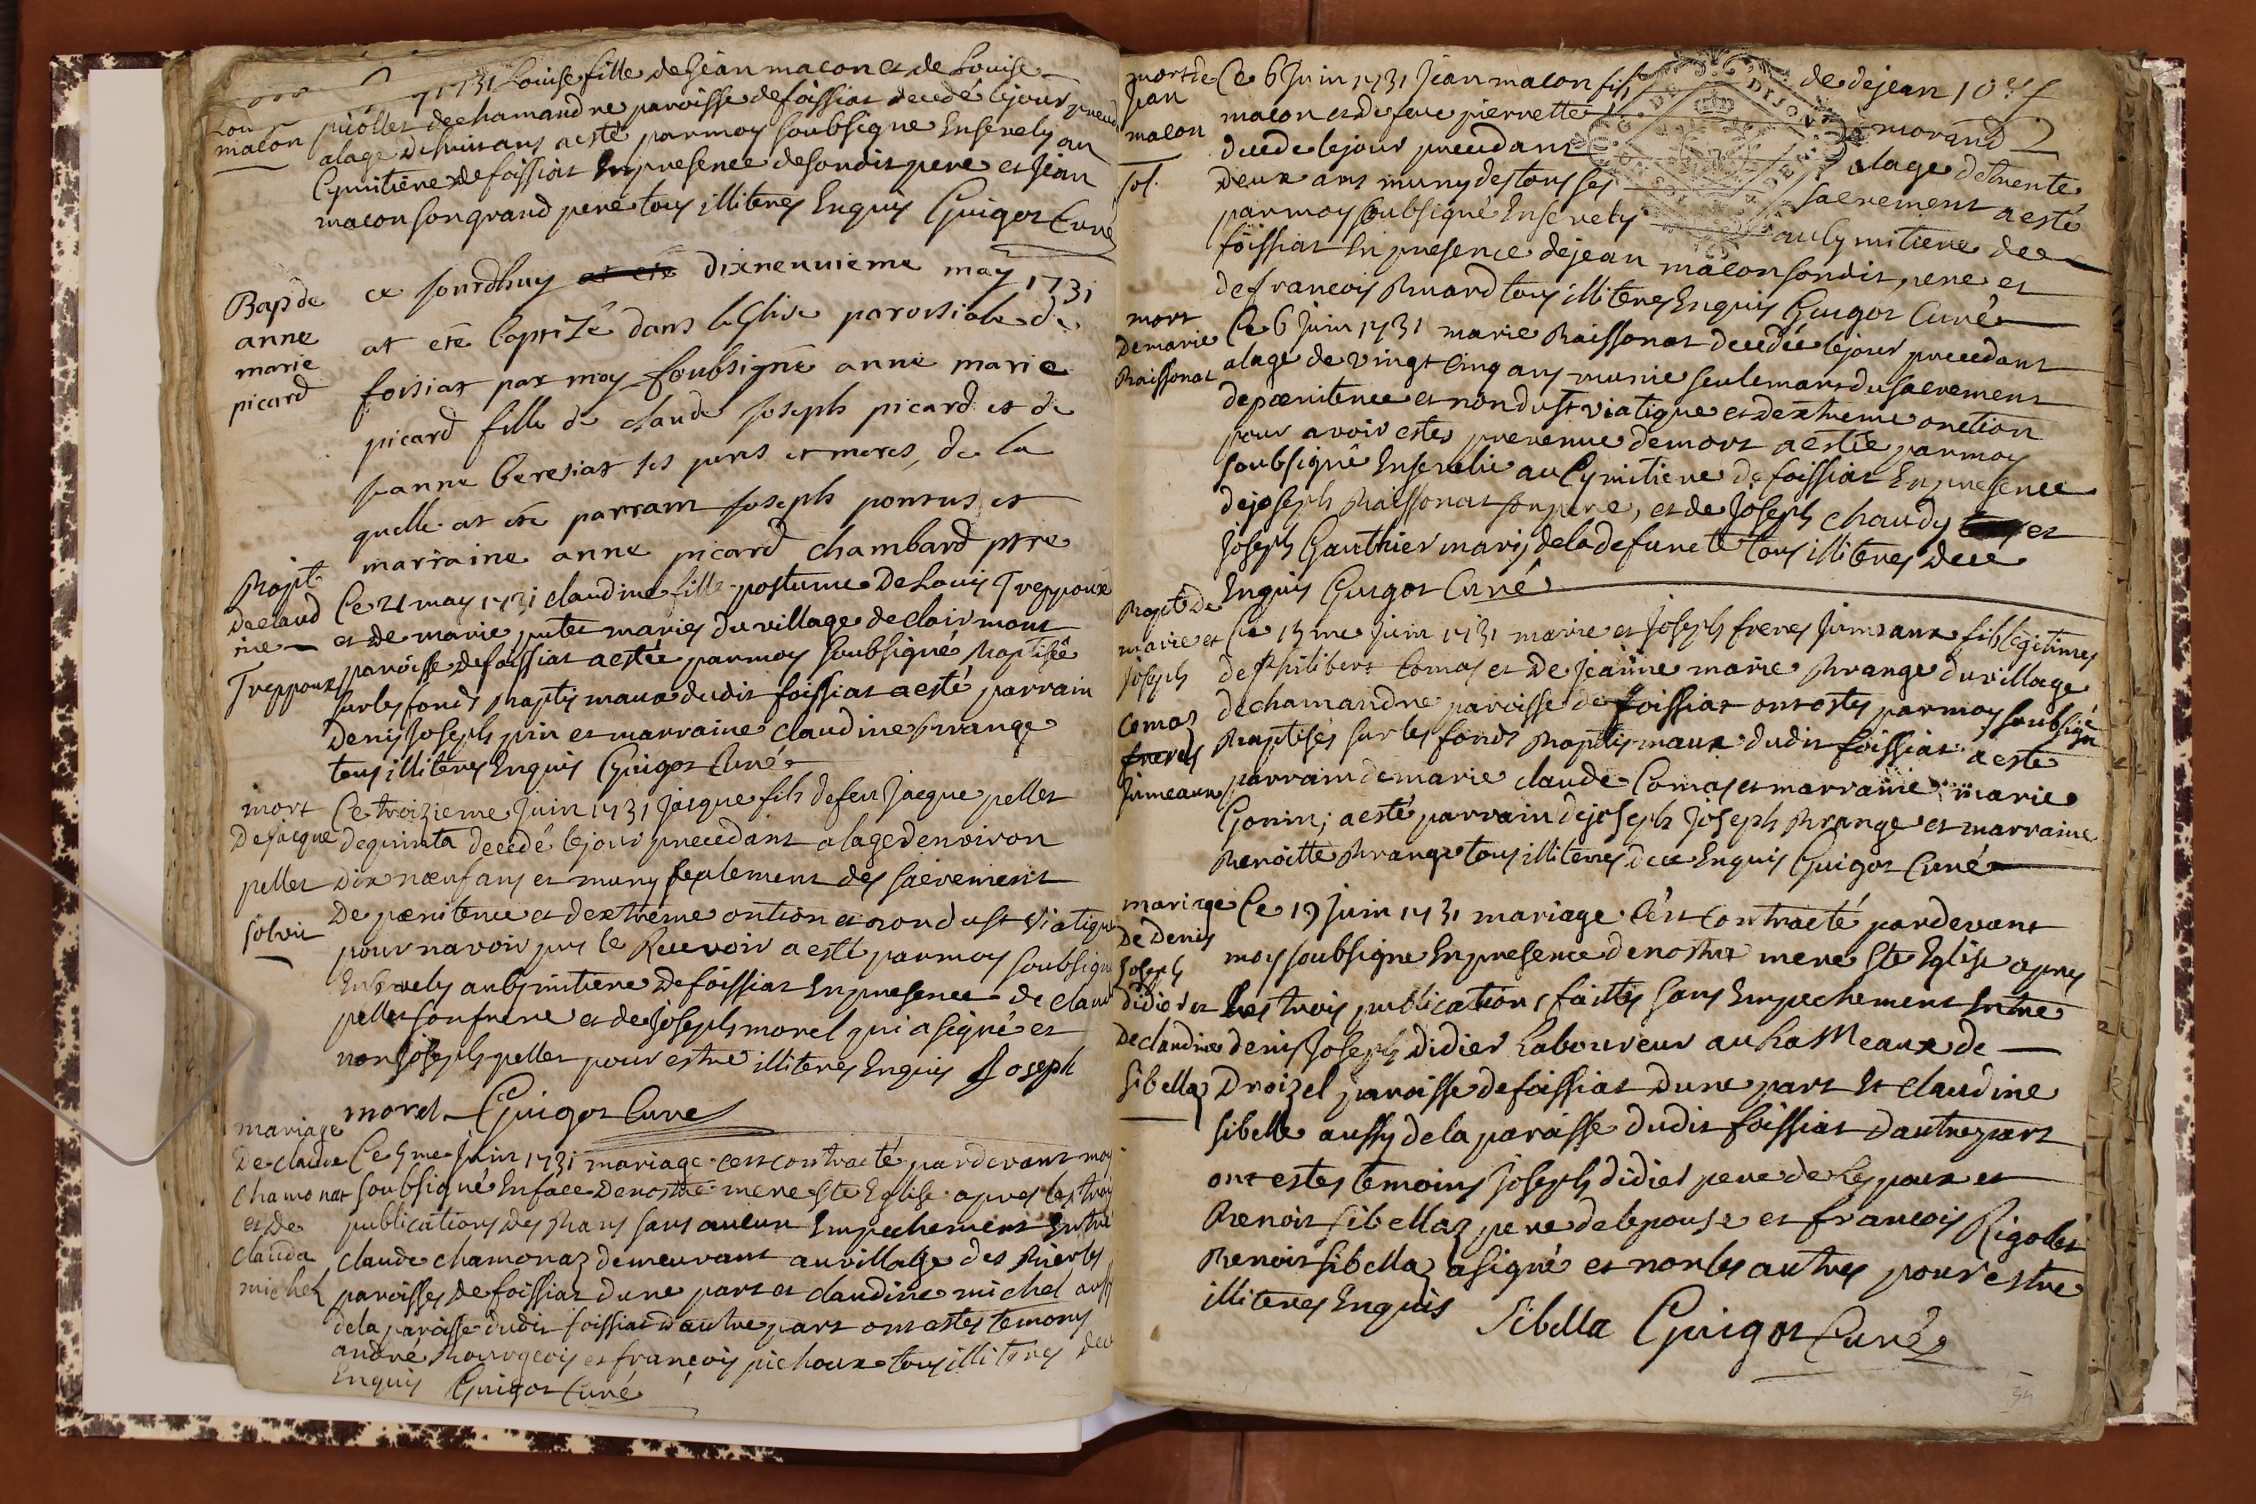 1731 Louise fille de Jean macon et de Louise
macon
picollet de chamandre paroisse de foissiat decedé le jour preced
alage de huit ans a esté par moy soubsigne Ensevely au
Cymitiere de foissiat En presence de sondit pere et Jean
macon son grand pere tous illiteres Enquis Guigot Curé
Bap de
anne
marie
picard
ce jourdhuy dixneuvieme may 1731
at eté baptizé dans leglise paroissiale de
foisiat par moy soubsigné anne marie
picard fille de claude joseph picard et de
jeanne beresiat ses peres et meres, de la
quelle at été parrain joseph pontus et
marraine anne picard chambard ptre
Bapt
de claud
ine
Treppoux
Ce 21 may 1731 claudine fille postume de Louis Treppoux
et de marie putet maries du village de clairmont
paroisse de foissiat a estée par moy soubsigné Baptisée
sur les fonds Baptismaux dudit foissiat a esté parrain
denis Joseph pin et marraine claudine Brange
tous illiteres Enquis Guigot Curé
mort
de jacque
pellet
solvit
Ce troizieme Juin 1731 jacque fils de feu Jacque pellet
de quinta decedé le jour precedant alage denviron
dix noeuf ans et muny seulement des sacrement
de poenitence et dextreme ontion et non du st viatique
pour navoir pu le Recevoir a esté par moy soubsigne
Ensevely au Cymitiere de foissiat En presence de claud
pellet son frere et de Joseph morel qui a signé et
non joseph pellet pour estre illiteres Enquis Joseph
morel Guigot Curé
mariage
de claude
chamonat
et de
clauda
michel
Ce 5me Juin 1731 mariage cest contracté pardevant moy
soubsigné En face de nostre mere ste Eglise apres les trois
publications des Bans sans aucun Empechement Entre
claude chamonaz demeurant au village des Bierles
paroisse de foissiat dune part et claudine michel aussy
de la paroisse dudit foissiat dautre part ont estes temoins
andré Bourgeois et françois pichoux tous illiteres de ce
Enquis Guigot Curé
mort de
Jean
macon
sol.
Ce 6 Juin 1731 Jean macon fils de dejean
macon et de feue pierrette morand
decede le jour precedant alage de trente
deux ans muny des tous ses sacrement a esté
par moy soubsigné Ensevely au Cymitiere de
foissiat En presence de jean macon sondit pere et
de francois Buard tous illiteres Enquis Guigot Curé
mort
de marie
Baissonat
Ce 6 Juin 1731 marie Baissonat decedée le jour precedant
alage de vingt cinq ans munie seulemant du sacrement
de poenitence et non du st viatique et dextreme onction
pour avoir estes prevenue de mort a estée par moy
soubsigné Ensevelie au Cymitiere de foissiat En presence
de joseph Baissonat son pere, et de Joseph chaudy et
Joseph Gauthier maris de la defuncte tous illiteres de ce
Enquis Guigot Curé
Bapte de
marie et
joseph
comas
freres
jumeaux
Ce 13me Juin 1731 marie et Joseph freres Jumeaux fils legitimes
de philibert Comas et de jeanne marie Brange du village
de chamandre paroisse de foissiat ont estes par moy soubsigné
Baptisés sur les fonds Baptismaux dudit foissiat a esté
parrain de marie claude Comas et marraine marie
Gonin; a esté parrain de joseph Joseph Brange et marraine
Benoitte Brange tous illiteres de ce Enquis Guigot Curé
mariage
de Denis
Joseph
didier et
de claudine
Sibellaz
Ce 19 Juin 1731 mariage cest contracté pardevant
moy soubsigne En presence de nostre mere ste Eglise apres
les trois publications faittes sans Empechement Entre
denis Joseph didier Laboureur au hameaux de
Droizel paroisse de foissiat dune part et claudine
sibelle aussy de la paroisse dudit foissiat dautre part
ont estes temoins Joseph didier pere de lespoux et
Benoit Sibellaz pere de lepouse et francois Rigolet
Benoit Sibellaz a signé et non les autres pour estre
illiteres Enquis Sibella Guigot Curé